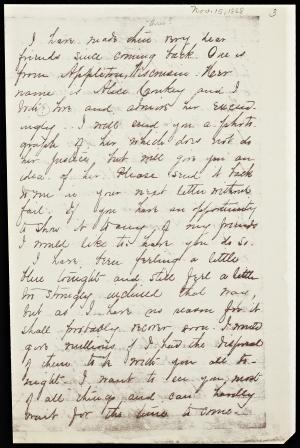 Nov. 15, 1868
3
"three"
I have made three very dear
friends since coming back. One is
from Appleton, Wisconsin. Her
name is Alice Conkey and I
both love and admire her exceed-
ingly. I will send you a photo-
graph of her which does not do
her justice, but will give you an
idea of her. Please send it back
to me in your next letter without
fail. If you have an opportunity
to show it to any of my friends
I would like to have you do so.
I have been feeling a little
blue tonight and still feel a little
bit strongly inclined that way,
but as I have no reason for it
shall probably recover soon. I would
give millions if I had the disposal
of them to be with you all to-
night. I want to see you most
of all things and can hardly
wait for the time to come.